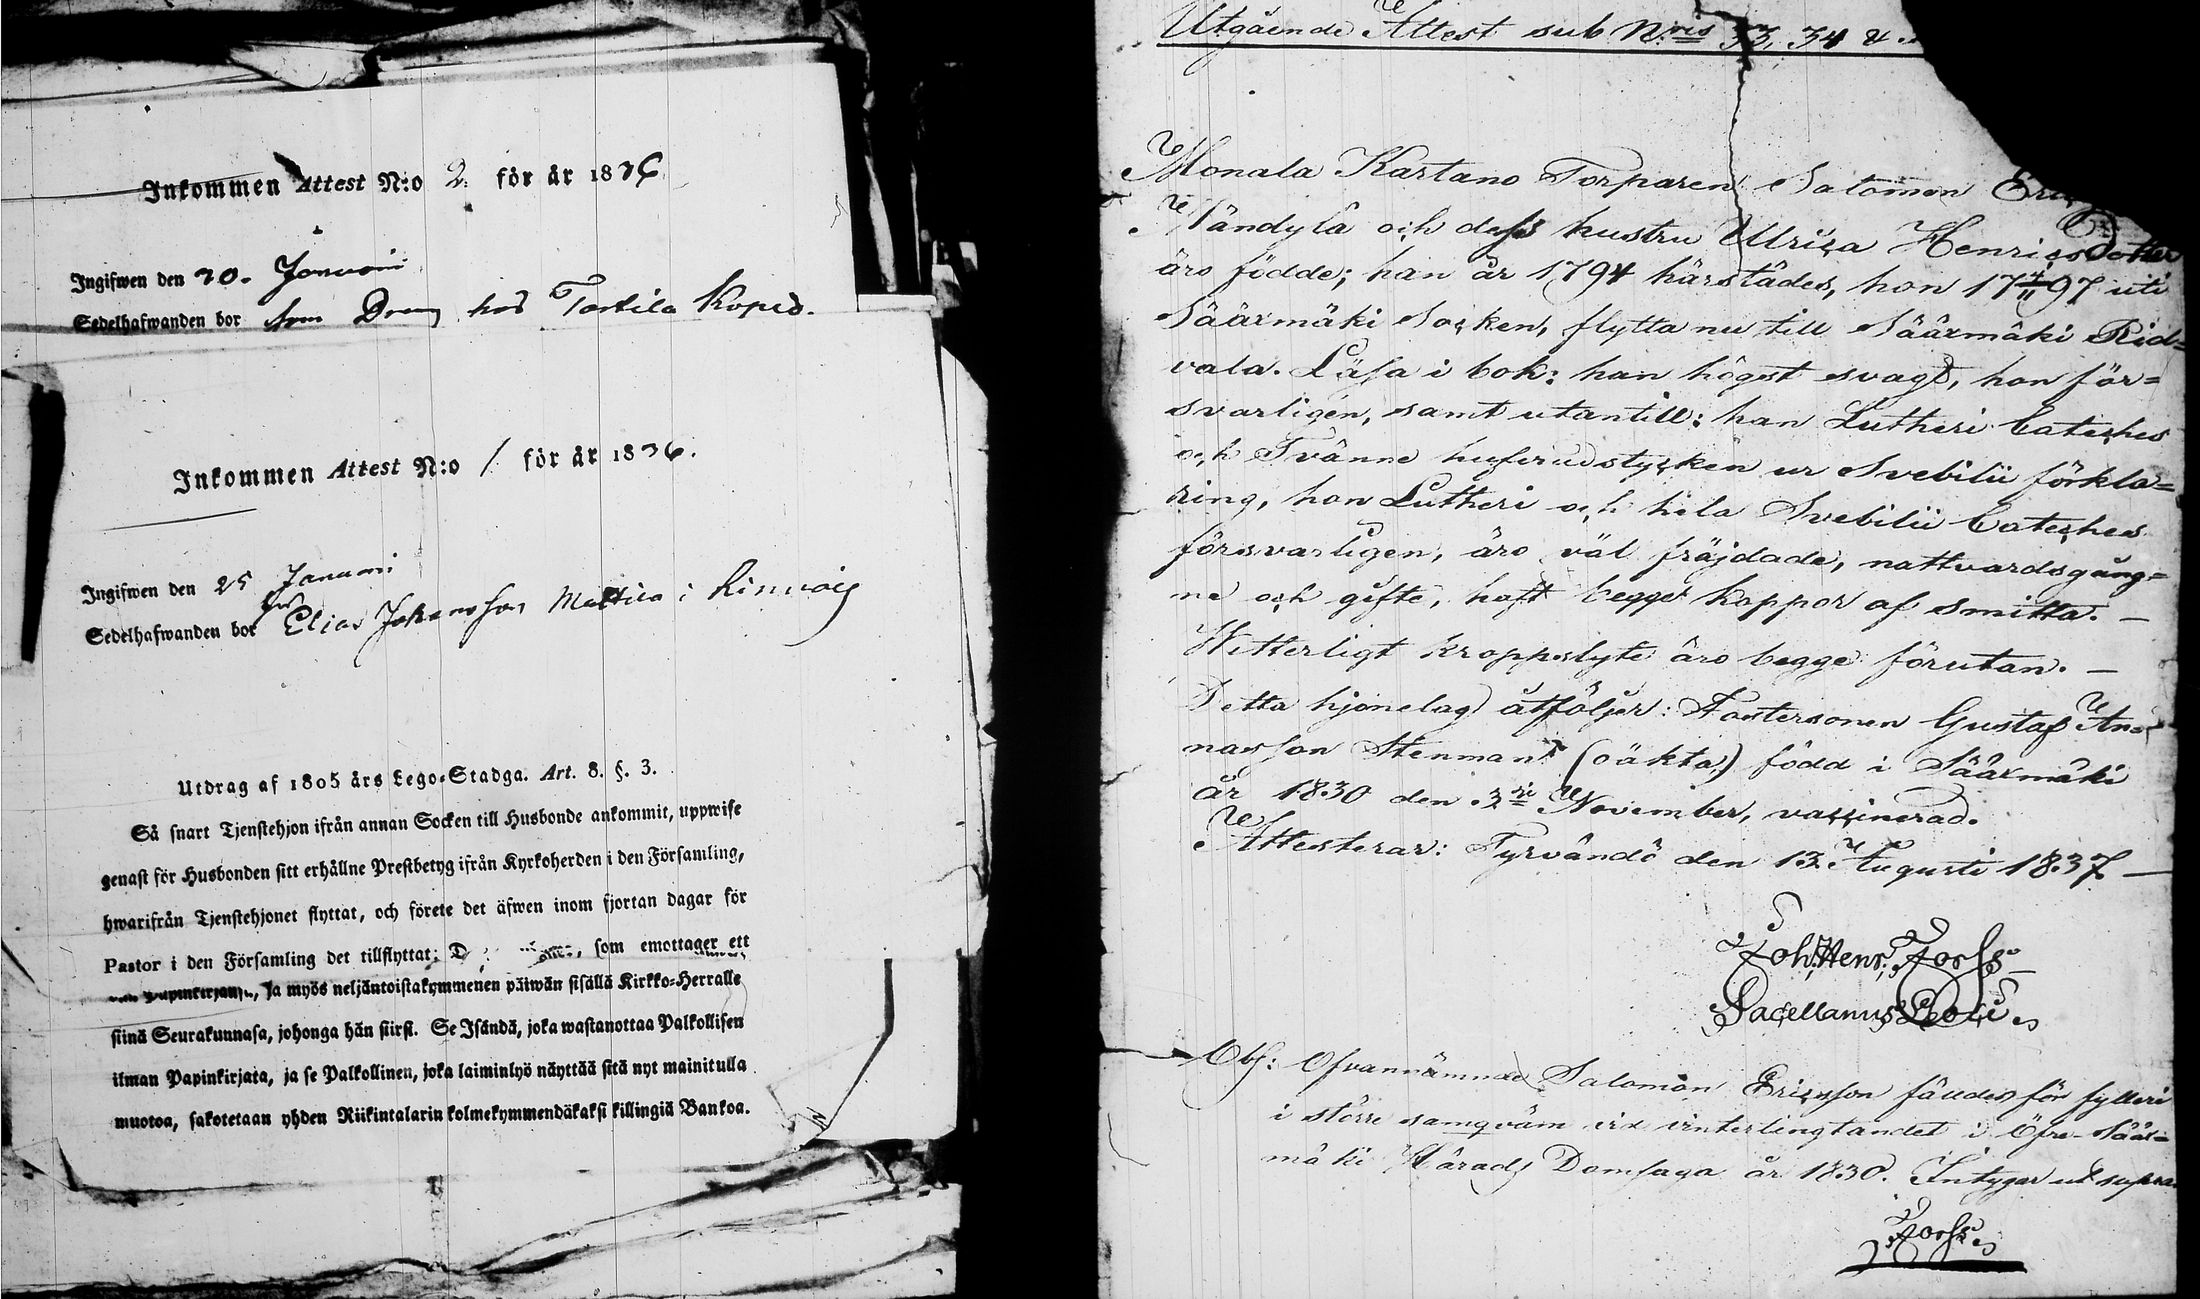 Inkommen Attest N:o 2. för år 1836
Ingifwen den 20. Januari
Sedelhafwanden bor som Dreng hos Tortila
Inkommen Attest N:o 1 för år 1836.
Ingifwen den 25 Januari
Sedelhafwanden bor hos Elias Johansson Mattila i
Utdrag af 1805 års Lego-Stadga. Art. 8. §. 3.
Så snart Tjenstehjon ifrån annan Socken till Husbonde ankommit, uppwise
genast för Husbonden sitt erhållne Prestbetyg ifrån Kyrkoherden i den Församling,
hwarifrån Tjenstehjonet flyttat, och förete det äfwen inom fjortan dagar för
Pastor i den Församling det tillflyttat; som emottager ett
ja myös neljäntoistakymmenen päiwän sisällä Kirkko-Herralle
siinä Seurakunnasa, johonga hän siirsi. Se Isändä, joka wastanottaa Palkollisen
ilman Papinkirjata, ja se Palkollinen, joka laiminlyö näyttää sitä nyt mainitulla
muotoa, sakotetaan yhden Riikintalarin kolmekymmendäkaksi killingiä Bankoa.
Utgående Attest sub N:ris 33, 34 &
Monala Kartano Torparen Salomon
Mändylä och dess hustru Ulrica Henricsdotter
äro födde; han år 1794 härstädes, hon 17 4/11 97 uti
Säärmäki Socken, flytta nu till Säärmäki Rid=
vala. Läsa i bok: han högst svagt, hon för=
svarligen, samt utantill: han Lutheri Cateches
och Tvänne hufvudstycken ur Svebilii förkla=
ring, hon Lutheri och hela Svebilii Cateches
försvarligen, äro väl fräjdade, nattvardsgång=
ne och gifte, haft begge koppor af smitta. —
Witterligt kroppslyte äro begge förutan. —
Detta hjonelag åtföljer: Fostersonen Gustaf An=
nasson Stenman (oäkta) född i Säärmäki
år 1830 den 3:die November, vaccinerad.
Attesterar: Tyrvändö den 13 Augusti 1837 —
Joh: Henr: Forss
Sacellanus Loci
Obs: Ofvannämnde Salomon Ericsson fälldes för fylleri
i större samqväm vid vintertingtandet i Öfre Säär=
mäki Härads Domsaga år 1830. Intygar ut supra
Forss